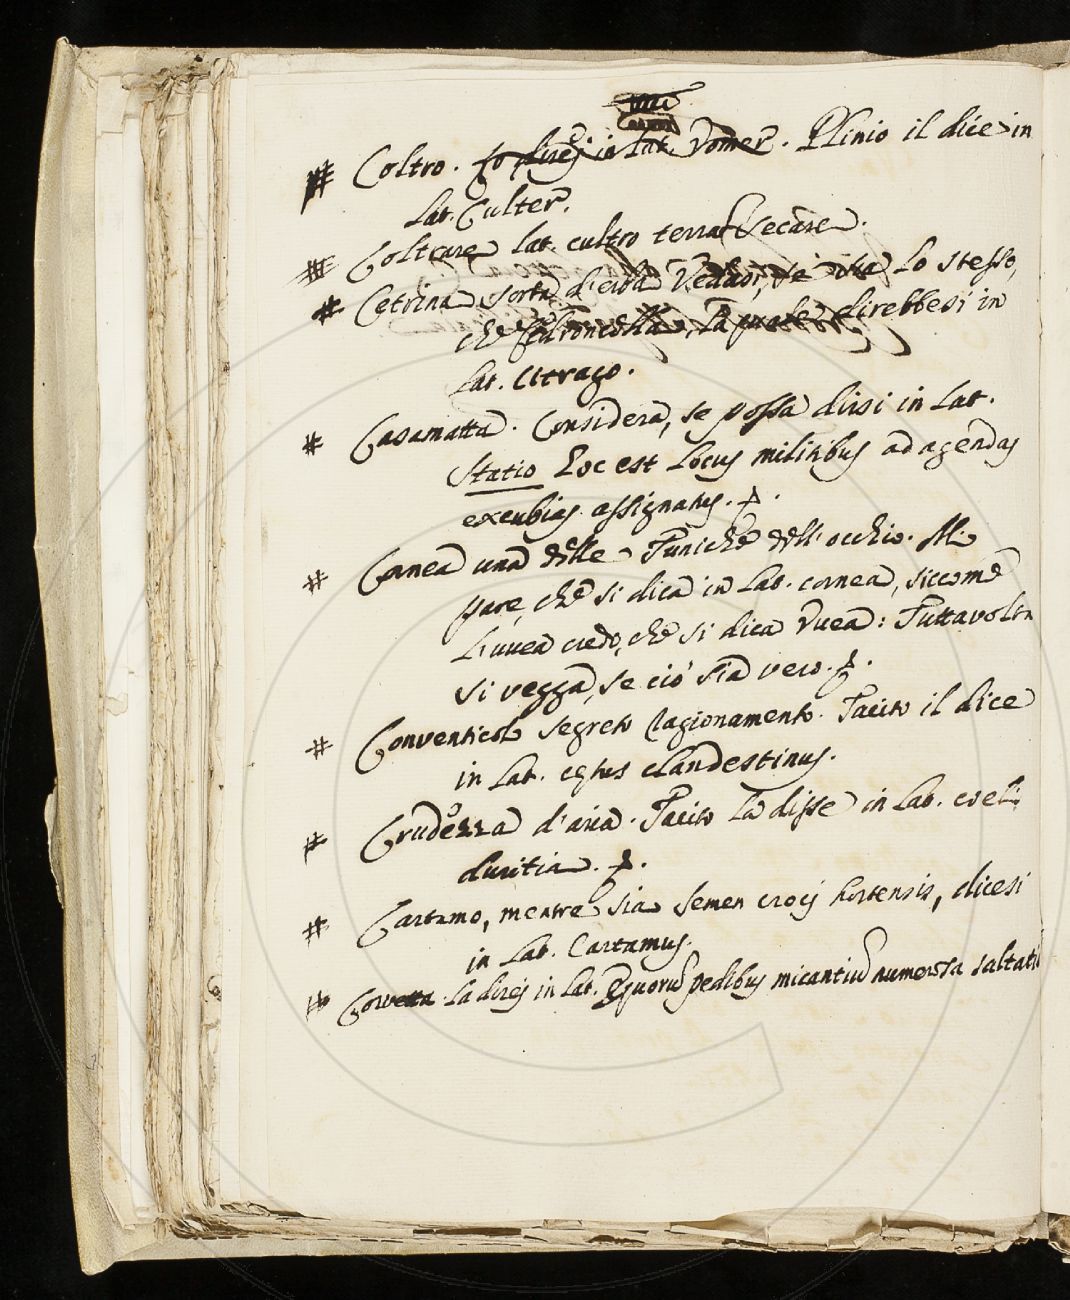 # Coltro. Io direj in Lat. Vomer. Plinio il dice in
Lat. Culter.
# Coltrare Lat. cultro terram secare.
# Cetrina sorta d'erba Lo stesso,
che Cedronella, la quale direbbesi in
Lat. Citrago.
# Casamatta. Considera, se possa dirsi in Lat.
Statio hoc est Locus militibus ad agendas
excubias assignatus.
# Cornea una delle Tuniche dell'occhio. Mi
pare, che si dica in Lat. cornea, siccome
L'uvea credo, che si dica Vuea: Tuttavolta
si vegga, se ciò sia vero.
# Conventicolo segreto Ragionamento. Tacito il dice
in Lat. cętus clandestinus.
# Crudezza d'aria. Tacito la disse in Lat. coeli
duritia.
# Cartamo, mentre sia semen crocij hortensis, dicesi
in Lat. Cartamus.
# Corvetta. La direj in Lat. Equorum pedibus micantium numerosa saltatio